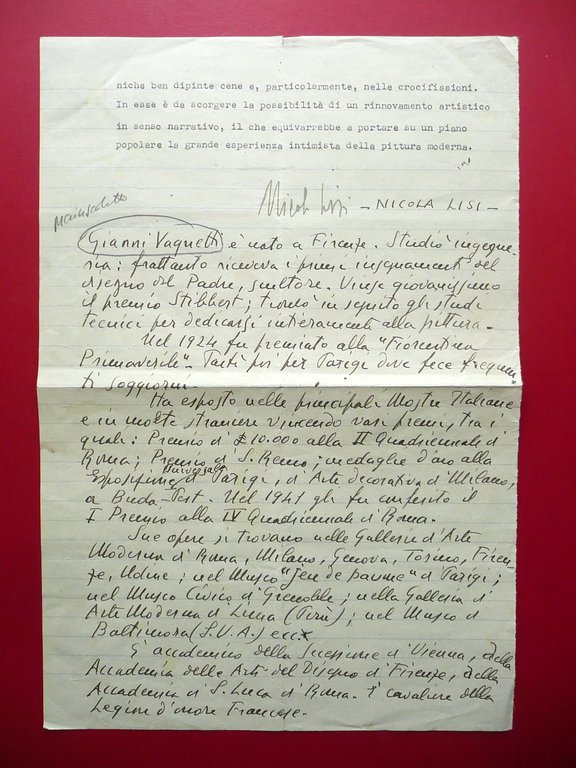 niche ben dipinte cene e, particolarmente, nelle crocifissioni.
In esse è da scorgere la possibilità di un rinnovamento artistico
in senso narrativo, il che equivarrebbe a portare su un piano
popolare la grande esperienza intimista della pittura moderna.
Nicola Lisi - NICOLA LISI -
Maiuscoletto
Gianni Vagnetti è nato a Firenze. Studiò ingegne-
ria: frattanto riceveva i primi insegnamenti del
disegno dal Padre, scultore. Vinse giovanissimo
il premio Stibbert; troncò in seguito gli studi
tecnici per dedicarsi interamente alla pittura.
Nel 1924 fu premiato alla "Fiorentina
Primaverile". Partì poi per Parigi dove fece frequen-
ti soggiorni.
Ha esposto nelle principali Mostre Italiane
e in molte straniere vincendo vari premi, tra i
quali: Premio di £ 10.000 alla II Quadriennale di
Roma; Premio di S. Remo; medaglie d'oro alla
Esposizione Universale di Parigi, d'Arte decorativa di Milano,
a Buda-Pest. Nel 1941 gli fu conferito il
I Premio alla IV Quadriennale di Roma.
Sue opere si trovano nelle Gallerie d'Arte
Moderna di Roma, Milano, Genova, Torino, Firen-
ze, Udine; nel Museo "Jeu de paume" di Parigi;
nel Museo Civico di Grenoble; nella Galleria d'
Arte Moderna di Lima (Perù); nel Museo di
Baltimora (S.U.A.) ecc.
È accademico della Secessione di Vienna, della
Accademia delle Arti del Disegno di Firenze, della
Accademia di S. Luca di Roma. È cavaliere della
Legion d'onore Francese.